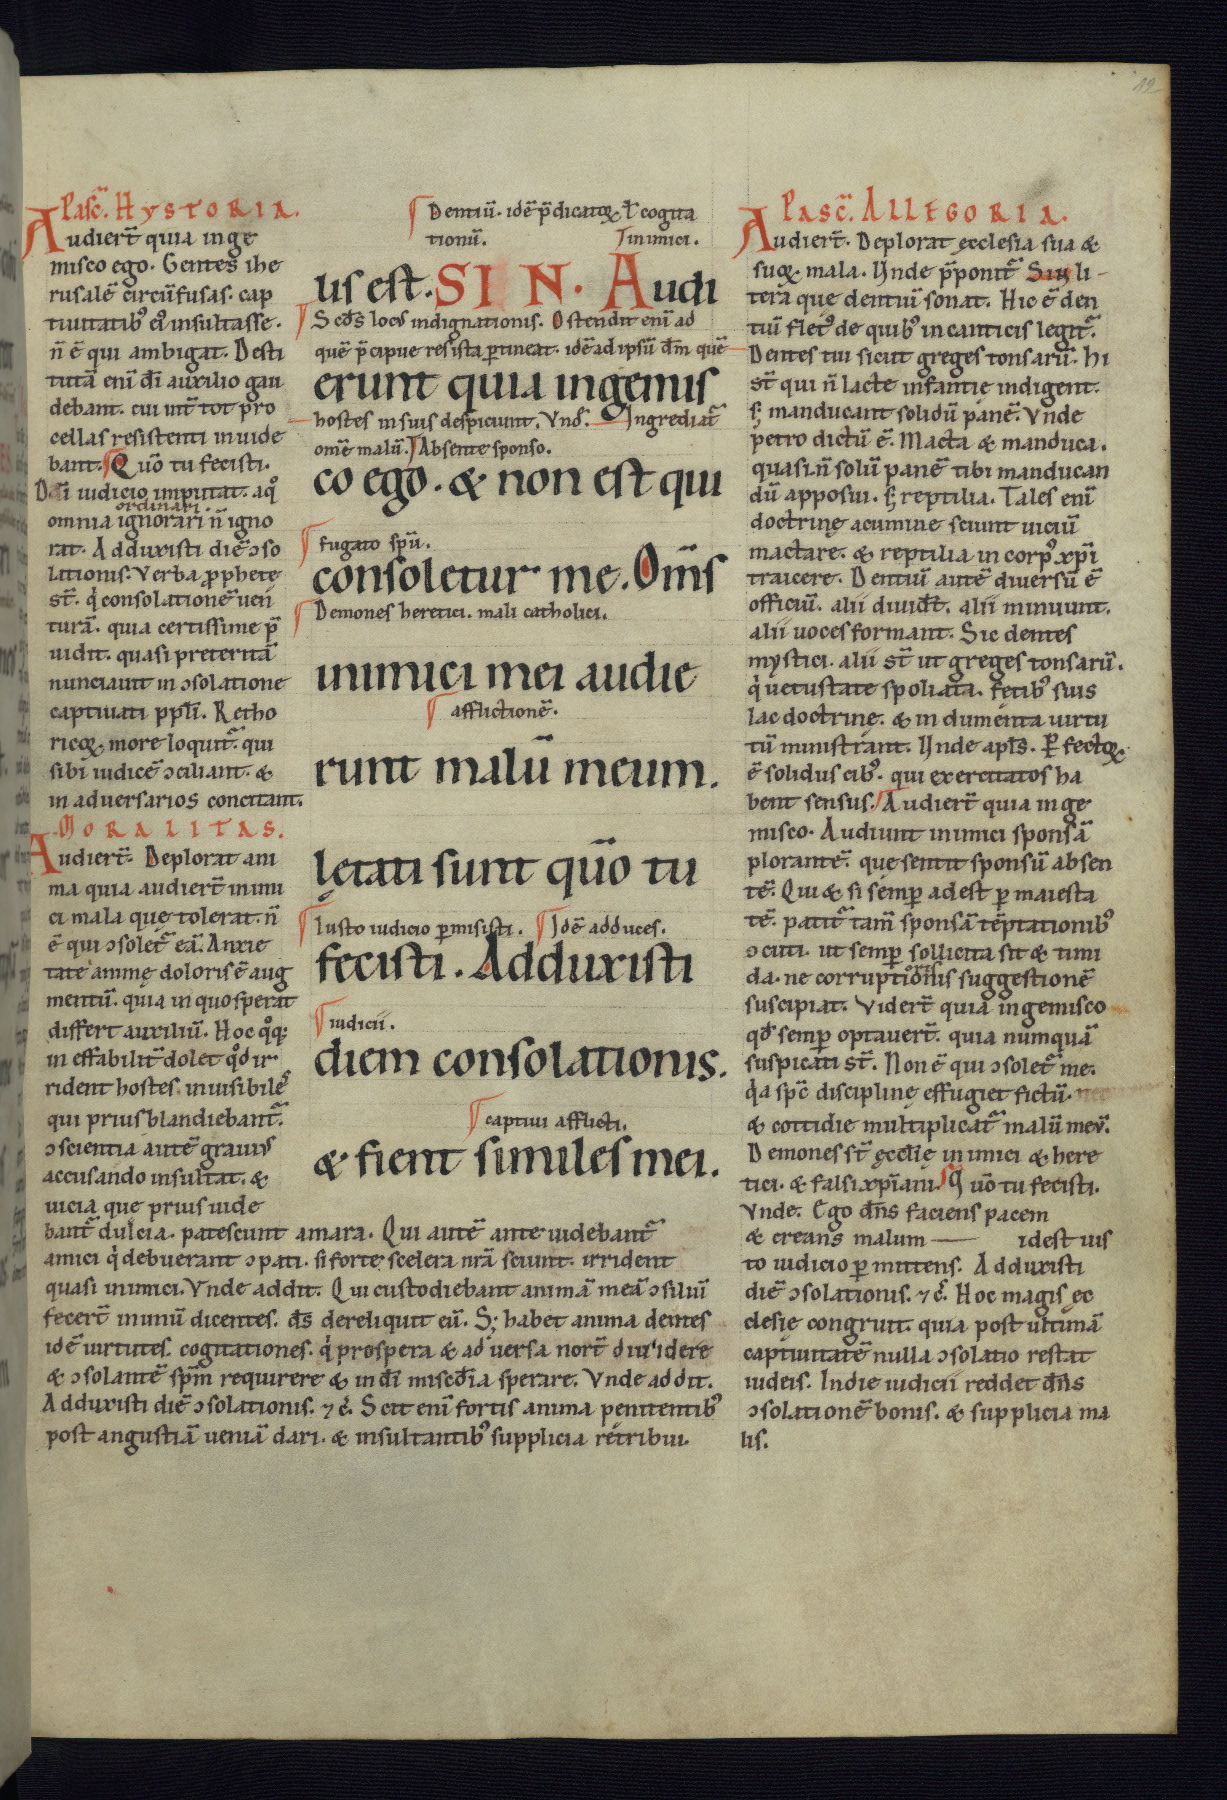 12
Pasc̄. HYSTORIA.
Audiert̄ quia inge
misco ego. Gentes ihe
rusalē circūfusas. cap
tiuitatib; ei' insultasse.
n̄ ē qui ambigat. Desti
tutā enī dī auxilio gau
debant. cui int̄ tot pro
cellas resistenti inuide
bant. Quō tu fecisti.
Dei iudicio imputat. a quo
ordinari
omnia ignorari n̄ igno
rat. Adduxisti diē ɔso
lationis. Verba ꝓphete
st̄. q̇ consolationē uen
turā. quia certissime p̄
uidit. quasi preteritā
nunciauit in ɔsolatione
captiuati ppl̄i. Retho
ricoꝝ more loquit̄. qui
sibi iudicē ɔciliant. &
in aduersarios concitant.
MORALITAS.
Audiert̄. Deplorat ani
ma quia audiert̄ inimi
ci mala que tolerat. n̄
ē qui ɔsolet̄ eā. Anxie
tate animę doloris ē aug
mentū. quia in quo sperat
differt auxiliū. Hoc qͦq;
in effabilit̄ dolet qͦd ir
rident hostes inuisibiles
qui prius blandiebant̄.
ɔscientia autē grauius
accusando insultat. &
uicia que prius uide
bant̄ dulcia. patescunt amara. Qui autē ante uidebant̄
amici q̇ debuerant ɔpati. si forte scelera nr̄a sciunt. irrident
quasi inimici. Vnde addit. Qui custodiebant animā meā ɔsiliū
fecert̄ in unū dicentes. d̄s dereliquit eū. S; habet anima dentes
idē uirtutes. cogitationes. q̇ prospera & aduersa nort̄ diuidere
& ɔsolantē sp̄m requirere & in dī miscd̄ia sperare. Vnde addit.
Adduxisti diē ɔsolationis. ⁊ c̄. Scit enī fortis anima penitentib;
post angustiā ueniā dari. & insultantib; supplicia retribui.
Dentiū. idē p̄dicatoꝝ. t̄ cogita
tionū. inimici.
us est. SIN. Audi
Scd̄s locus indignationis. Ostendit enī ad
quē p̄cipue res ista ꝑtineat. idē ad ipsū dm̄ quē
erunt quia ingemis
hostes in suis despiciunt. Vnd̄. Ingrediat̄
omē malū. Absente sponso.
co ego. & non est qui
fugato spū.
consoletur me. Om̄s
Demones heretici. mali catholici.
inimici mei audie
afflictionē.
runt malū meum.
lętati sunt quō tu
Iusto iudicio ꝑmisisti. Idē adduces.
fecisti. Adduxisti
iudicii.
diem consolationis.
captiui afflicti.
& fient similes mei.
Pasc̄. ALLEGORIA.
Audiert̄. Deplorat ęcclesia sua &
suoꝝ mala. Vnde p̄ponit̄ Sin li
tera que dentiū sonat. Hic ē den
tiū flet' de quib; in canticis legit̄.
Dentes tui sicut greges tonsarū. Hi
st̄ qui n̄ lacte infantię indigent.
s; manducant solidū panē. Vnde
petro dictū ē. Macta & manduca.
quasi n̄ solū panē tibi manducan
dū apposui. s; reptilia. Tales enī
doctrinę acumine sciunt uiciū
mactare. & reptilia in corp' xp̄i
traicere. Dentiū autē diuersū ē
officiū. alii diuidt̄. alii minuunt.
alii uoces formant. Sic dentes
mystici. alii st̄ ut greges tonsarū.
q̇ uetustate spoliata. fetib; suis
lac doctrinę. & indumenta uirtu
tū ministrant. Vnde apl̄s. Perfectoꝝ
ē solidus cib'. qui exercitatos ha
bent sensus. Audiert̄ quia inge
misco. Audiunt inimici sponsā
plorantē. que sentit sponsū absen
tē. Qui & si semꝑ adest ꝑ maiesta
tē. patit̄ tam̄ sponsā tēptationib;
ɔcuti. ut semꝑ sollicita sit & timi
da. ne corruptionis suggestionē
suscipiat. Vidert̄ quia ingemisco
qd̄ semꝑ optauert̄. quia numquā
suspicati st̄. Non ē qui ɔsolet̄ me.
q̇a spc̄ disciplinę effugiet fictū.
& cottidie multiplicat̄ malū meū.
Demones st̄ ęcclie inimici & here
tici. & falsi xp̄iani. Quō tu fecisti.
Vnde. Ego dn̄s faciens pacem
& creans malum idest ius
to iudicio ꝑmittens. Adduxisti
diē ɔsolationis. ⁊ c̄. Hoc magis ęc
clesię congruit. quia post ultimā
captiuitatē nulla ɔsolatio restat
iudeis. In die iudicii reddet dn̄s
ɔsolationē bonis. & supplicia ma
lis.